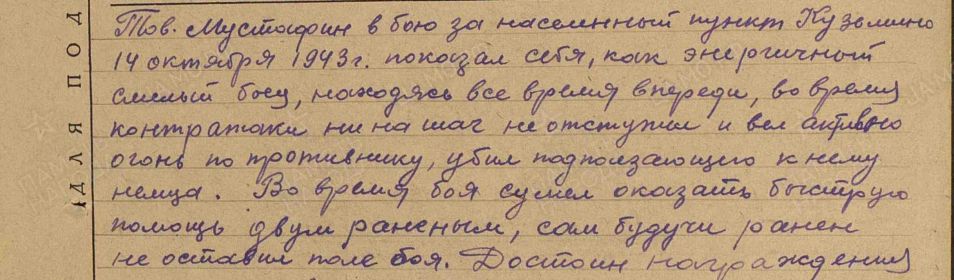 Тов. Мустафин в бою за населенный пункт Кузьмино
14 октября 1943 г. показал себя, как энергичный
смелый боец, находясь все время впереди, во время
контратаки ни на шаг не отступил и вел активно
огонь по противнику, убил подползающего к нему
немца. Во время боя сумел оказать быструю
помощь двум раненым, сам будучи ранен
не оставил поле боя. Достоин награждения
ДЛЯ ПОД